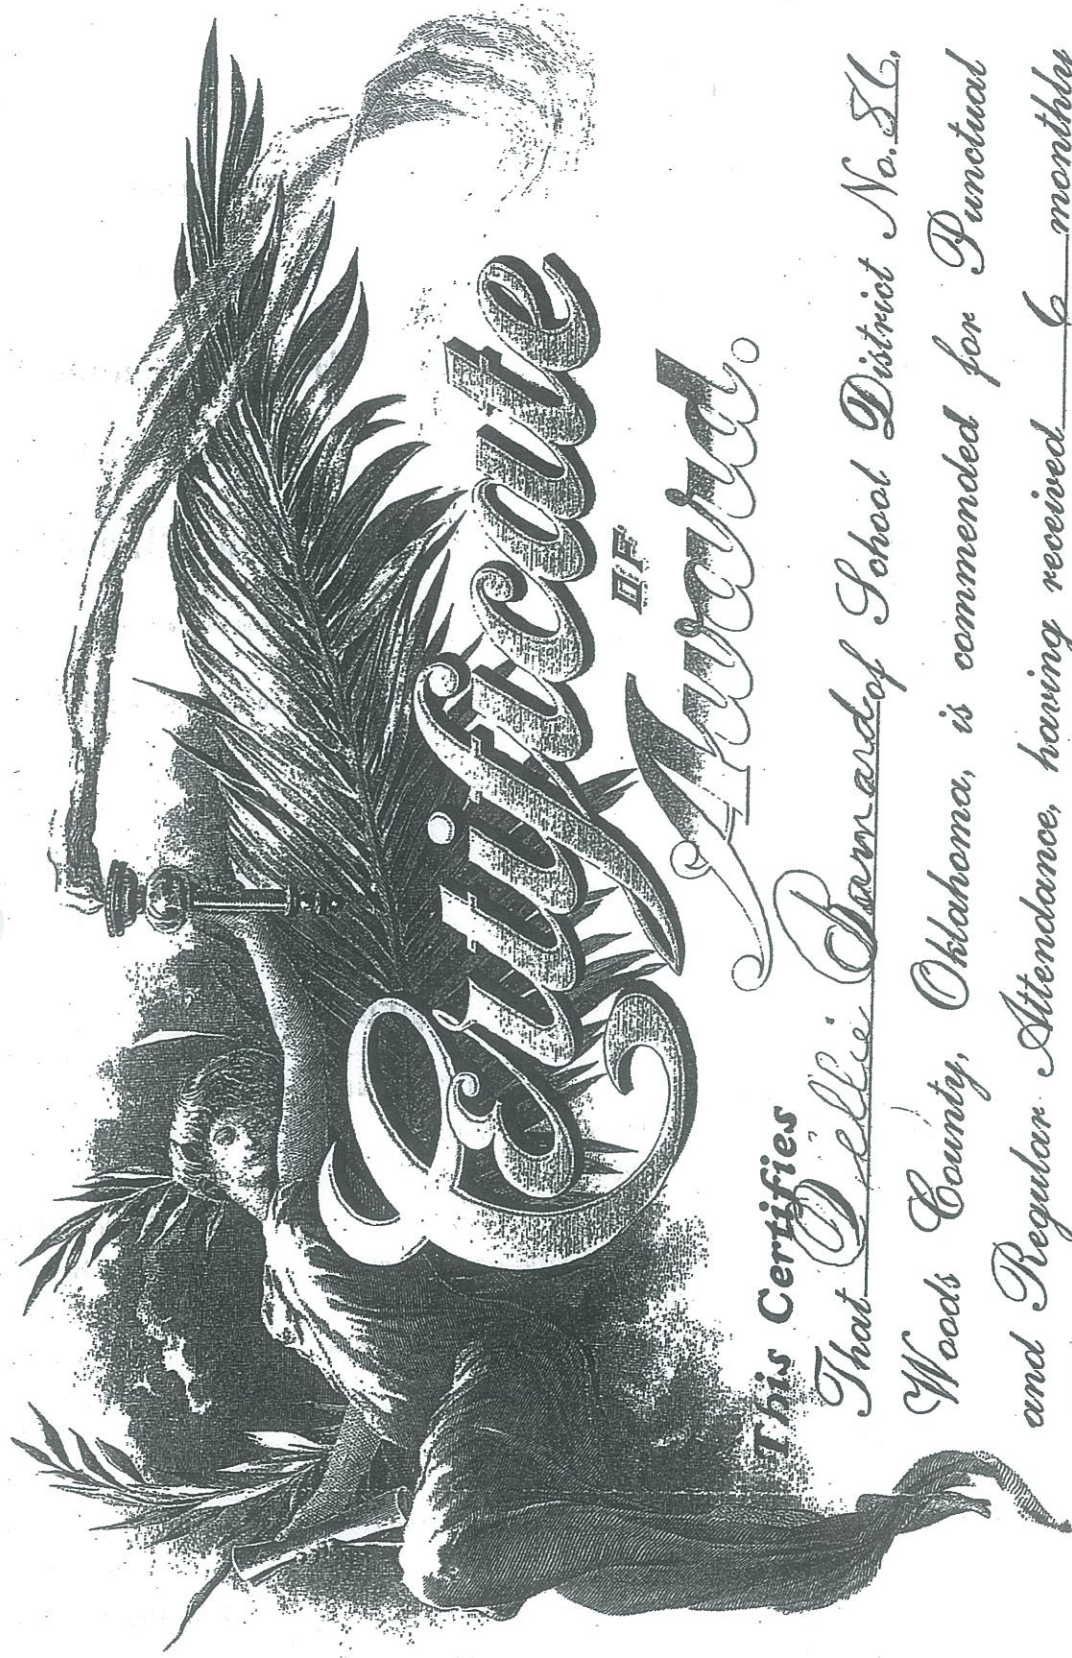 Certificate
OF
Award.
This Certifies
That Dellie Barnard of School District No. 86,
Woods County, Oklahoma, is commended for Punctual
and Regular Attendance, having received 6 monthly